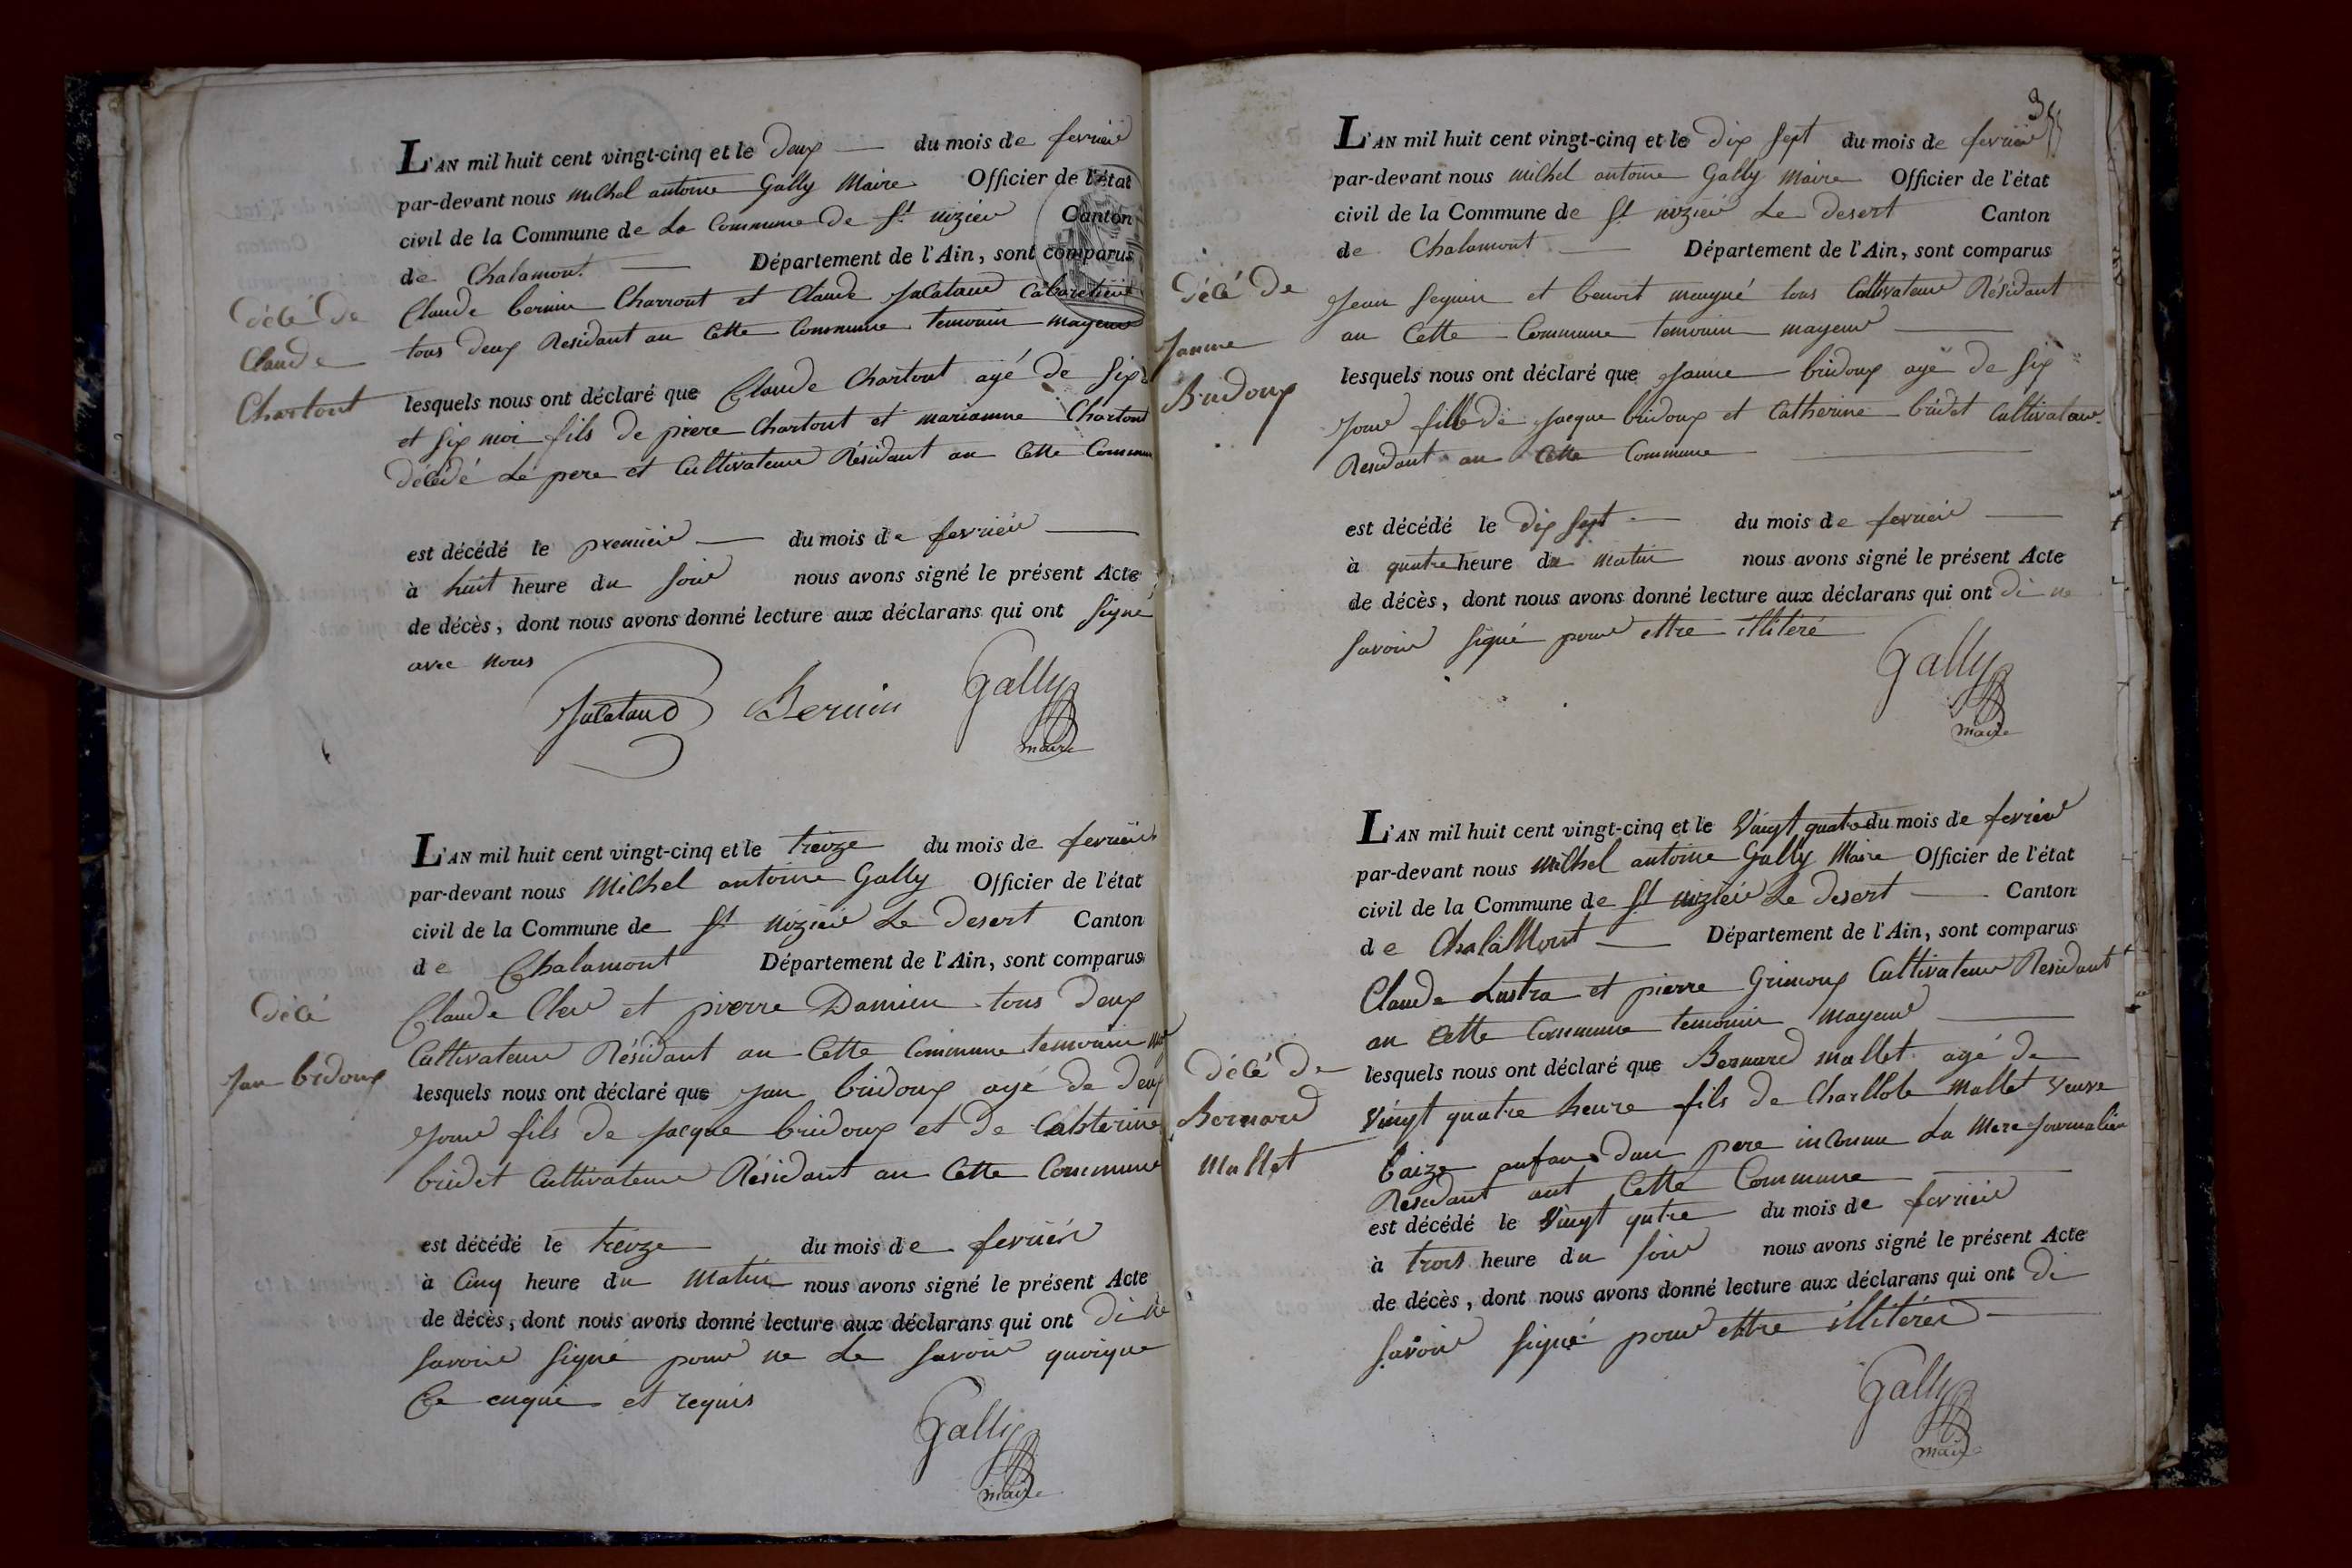 L'AN mil huit cent vingt-cinq et le deux du mois de fevrier
par-devant nous michel antoine Gally Maire Officier de l'état
civil de la Commune de La Commune De St nizier Canton
de Chalamont Département de l'Ain, sont comparus
Claude bernin Charront et Claude Jalataud Cabaretier
tous deux Residant au Cette Commune temouin mayeur
lesquels nous ont déclaré que Claude Chartout agé de Six
et Six moi fils de piere Chartout et marianne Chartout
décédé Le pere et Cultivateur Résidant au Cette Commun
décé De
Claude
Chartout
est décédé le premiér du mois de fevriér
à huit heure du Soir nous avons signé le présent Acte
de décès, dont nous avons donné lecture aux déclarans qui ont Signe
avec nous
Jalataud Bernin Gally
maire
L'AN mil huit cent vingt-cinq et le treize du mois de fevrier
par-devant nous Michel antoine Gally Officier de l'état
civil de la Commune de St nizier Le Desert Canton
de Chalamont Département de l'Ain, sont comparus
Claude Cler et pierre Damien tous Deux
Cultivateur Résidant au Cette Commune temouin
lesquels nous ont déclaré que Jan bridoux agé de Deux
Jour fils De Jacque bridoux et de Cahterine
bridet Cultivateur Résidant au Cette Commune
décé
Jan bridoux
est décédé le treize du mois de fevriér
à Cinq heure du Matin nous avons signé le présent Acte
de décès, dont nous avons donné lecture aux déclarans qui ont Di ne
Savoir Signé pour ne Le Savoir quoique
Ce enquie et requis
Gally
maire
L'AN mil huit cent vingt-cinq et le Dix Sept du mois de fevrier
par-devant nous michel antoine Gally Maire Officier de l'état
civil de la Commune de St nizier Le Desert Canton
de Chalamont Département de l'Ain, sont comparus
Jean Seguin et benoit mougné tous Cultivateur Résidant
au Cette Commune temouin mayeur
lesquels nous ont déclaré que Janne bridoux agé de Six
Jour fille de Jacque bridoux et Catherine bridet Cultivateur
Residant au Cette Commune
décé De
Janne
Bridoux
est décédé le Dix Sept du mois de fevriér
à quatre heure du Matin nous avons signé le présent Acte
de décès, dont nous avons donné lecture aux déclarans qui ont Di ne
Savoir Signé pour ettre illiteré
Gally
maire
L'AN mil huit cent vingt-cinq et le Vingt quatre du mois de fevriér
par-devant nous Michel antoine Gally Maire Officier de l'état
civil de la Commune de St nizier Le Desert Canton
de Chalamont Département de l'Ain, sont comparus
Claude Lustra et pierre Grimoux Cultivateur Residant
au Cette Commune temouin mayeur
lesquels nous ont déclaré que Bernard mallet agé de
Vingt quatre heure fils de Charllote Mallet Veuve
baize enfan dun pere inConnu La Mere Journalier
Residant aut Cette Commune
décé De
Bernard
Mallet
est décédé le Vingt qutre du mois de fevrier
à trois heure du Soir nous avons signé le présent Acte
de décès, dont nous avons donné lecture aux déclarans qui ont Di
Savoir Signé pour ettre illiterér
Gally
maire